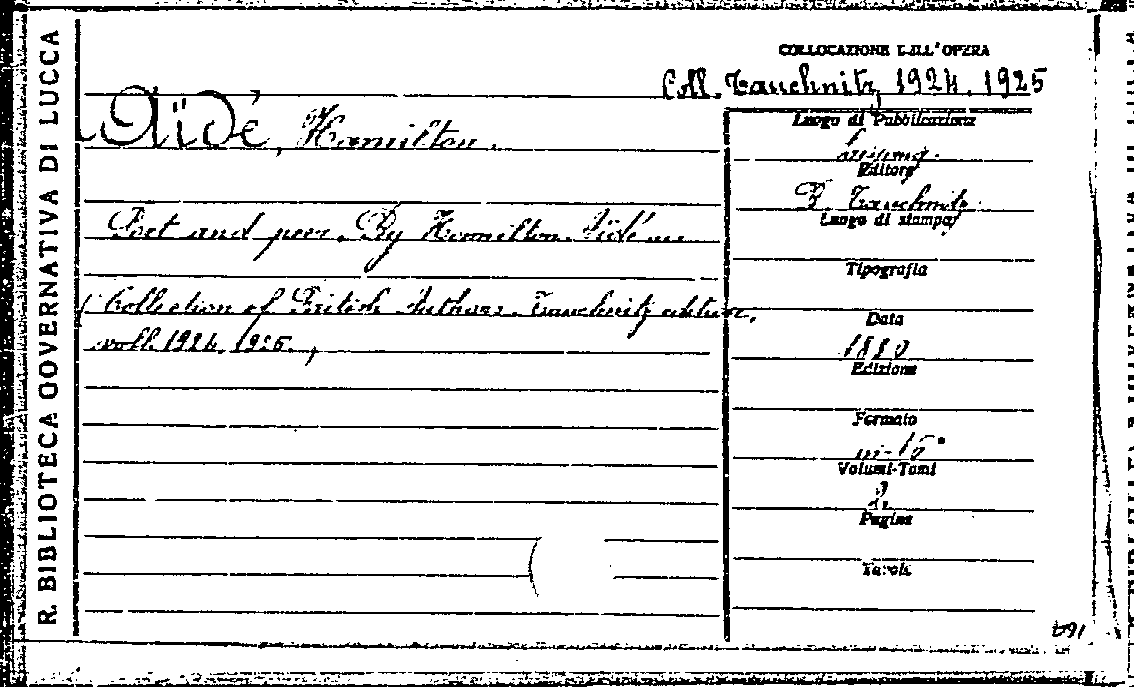 R. BIBLIOTECA GOVERNATIVA DI LUCCA
COLLOCAZIONE DELL'OPERA
Coll. Tauchnitz, 1924. 1925
Aïdé, Hamilton.
Poet and peer. By Hamilton Aïdé
Collection of British Authors. Tauchnitz edition,
voll. 1924, 1925.
Luogo di Pubblicazione
Editore
B. Tauchnitz
Luogo di stampa
Tipografia
Data
1880
Edizione
Formato
in-16°
Volumi-Tomi
2.
Pagine
Tavole